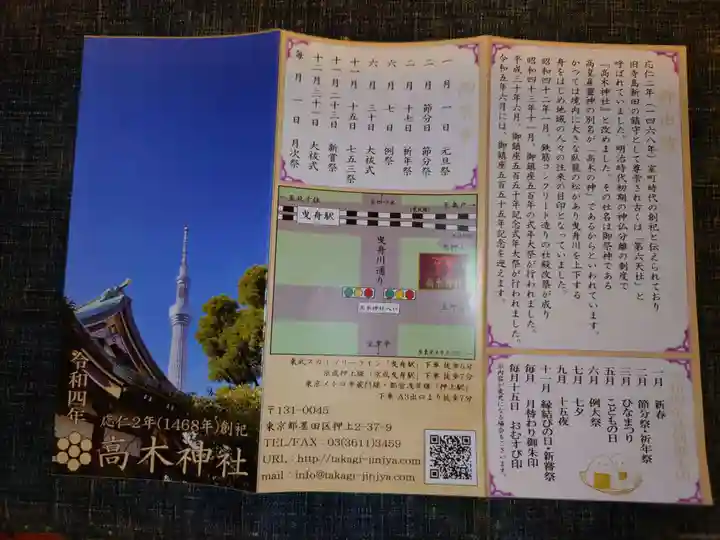 応仁二年(一四六八年)室町時代の創祀と伝えられており
旧寺島新田の鎮守として尊崇され古くは「第六天社」と
呼ばれていました。明治時代初期の神仏分離の制度で
「高木神社」と改めました。その社名は御祭神である
高皇産霊神の別名が「高木の神」であるからといわれています。
かつては境内に大きな臥龍の松があり曳舟川を上下する
舟をはじめ地域の人々の往来の目印となっていました。
昭和四十二年一月、鉄筋コンクリード造りの社殿改祭が成り
昭和四十三年十一月、御鎮座五百年の式年大祭が行われました。
平成三十年六月、御鎮座五百五十年記念式年大祭が行われました。
令和五年六月には、御鎮座五百五十五年記念を迎えます。
一月 新春
二月 節分祭・祈年祭
三月 ひなまつり
五月 こどもの日
六月 例大祭
七月 七夕
九月 十五夜
十一月 縁結びの日・新嘗祭
毎月 月替わり御朱印
毎月十五日 おむすび印
一月 一日 元旦祭
二月 節分日 節分祭
二月 十七日 祈年祭
六月 七日 例祭
六月 三十日 大祓式
十一月 十五日 七五三祭
十一月 二十三日 新嘗祭
十二月 三十一日 大祓式
毎月 一日 月次祭
曳舟駅
曳舟川通り
高木神社
高木神社入口
東武スカイツリーライン「曳舟駅」下車 徒歩6分
京成押上線「京成曳舟駅」下車 徒歩7分
東京メトロ半蔵門線・都営浅草線「押上駅」
下車 A3出口より徒歩7分
〒131-0045
東京都墨田区押上2-37-9
TEL/FAX 03(3611)3459
URL:http://takagi-jinjya.com
mail:info@takagi-jinjya.com
令和四年
応仁2年(1468年)創祀
高木神社